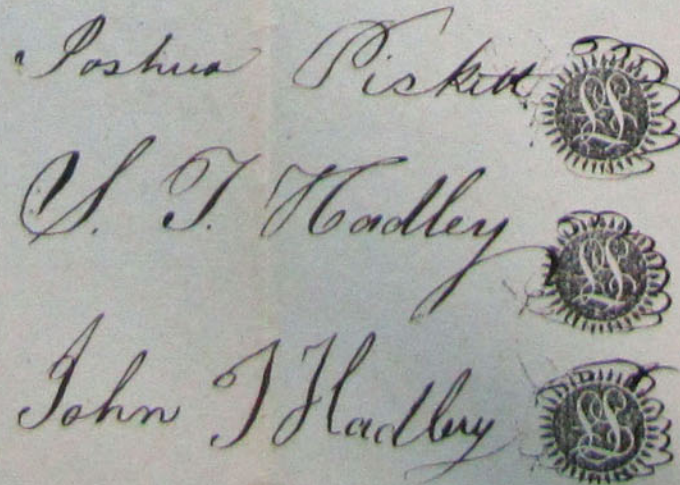 Joshua Piskett LS
S. T. Hadley LS
John T Hadley LS